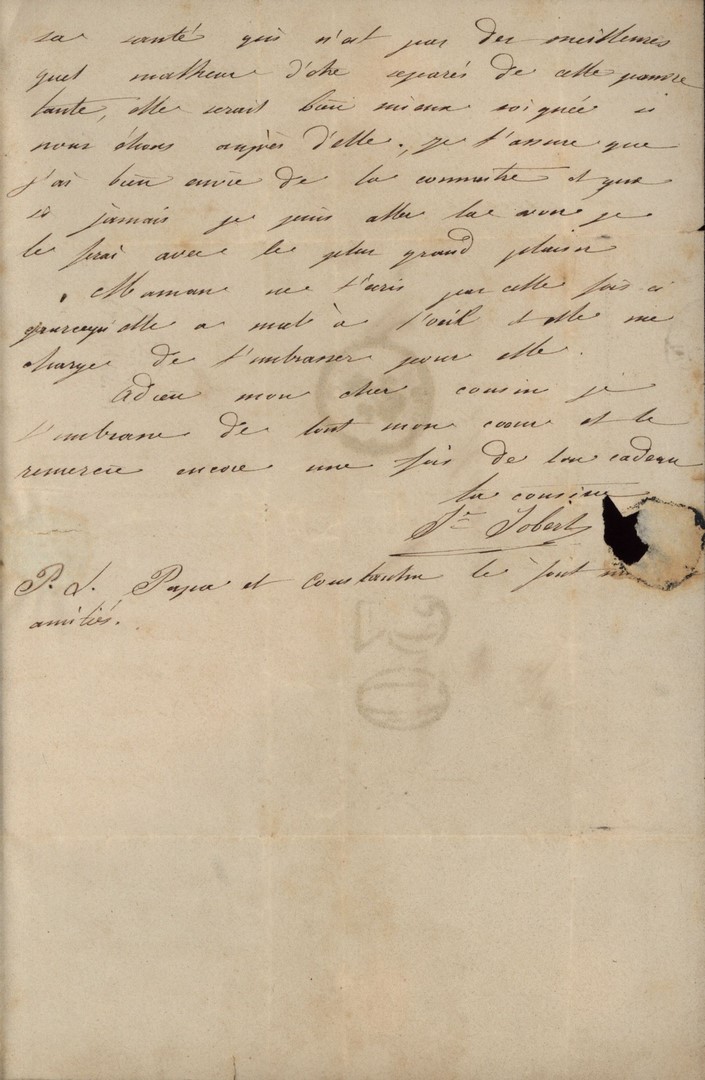 sa santé qui n'est pas des meilleures
quel malheur d'être separés de cette pauvre
tante, elle serait bien mieux soignée si
nous étions auprès d'elle. je t'assure que
j'ai bien envie de la connaitre et que
si jamais je puis aller la voir je
le ferai avec le plus grand plaisir
Maman ne t'écris pas cette fois ci
parcequ'elle a mal à l'oeil et elle me
charge de t'embrasser pour elle.
Adieu mon cher cousin je
t'embrasse de tout mon coeur et te
remercie encore une fois de ton cadeau
ta cousine
Jobert
P. S. Papa et Constantin te font
amitiés.
20